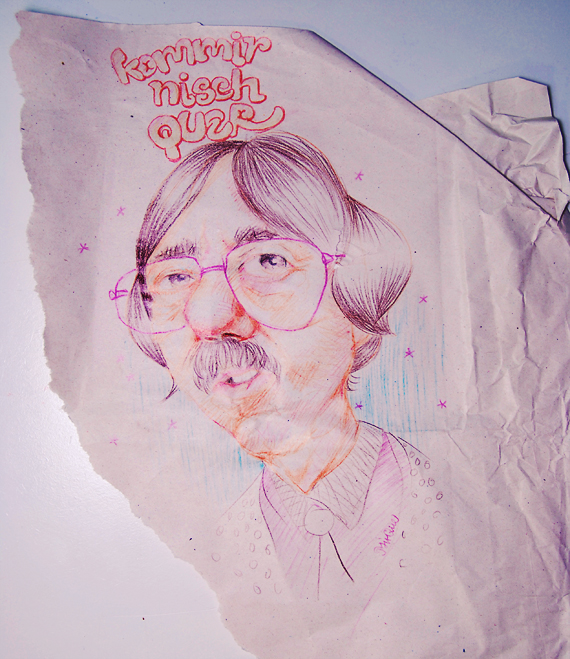 kommir
nisch
QUER